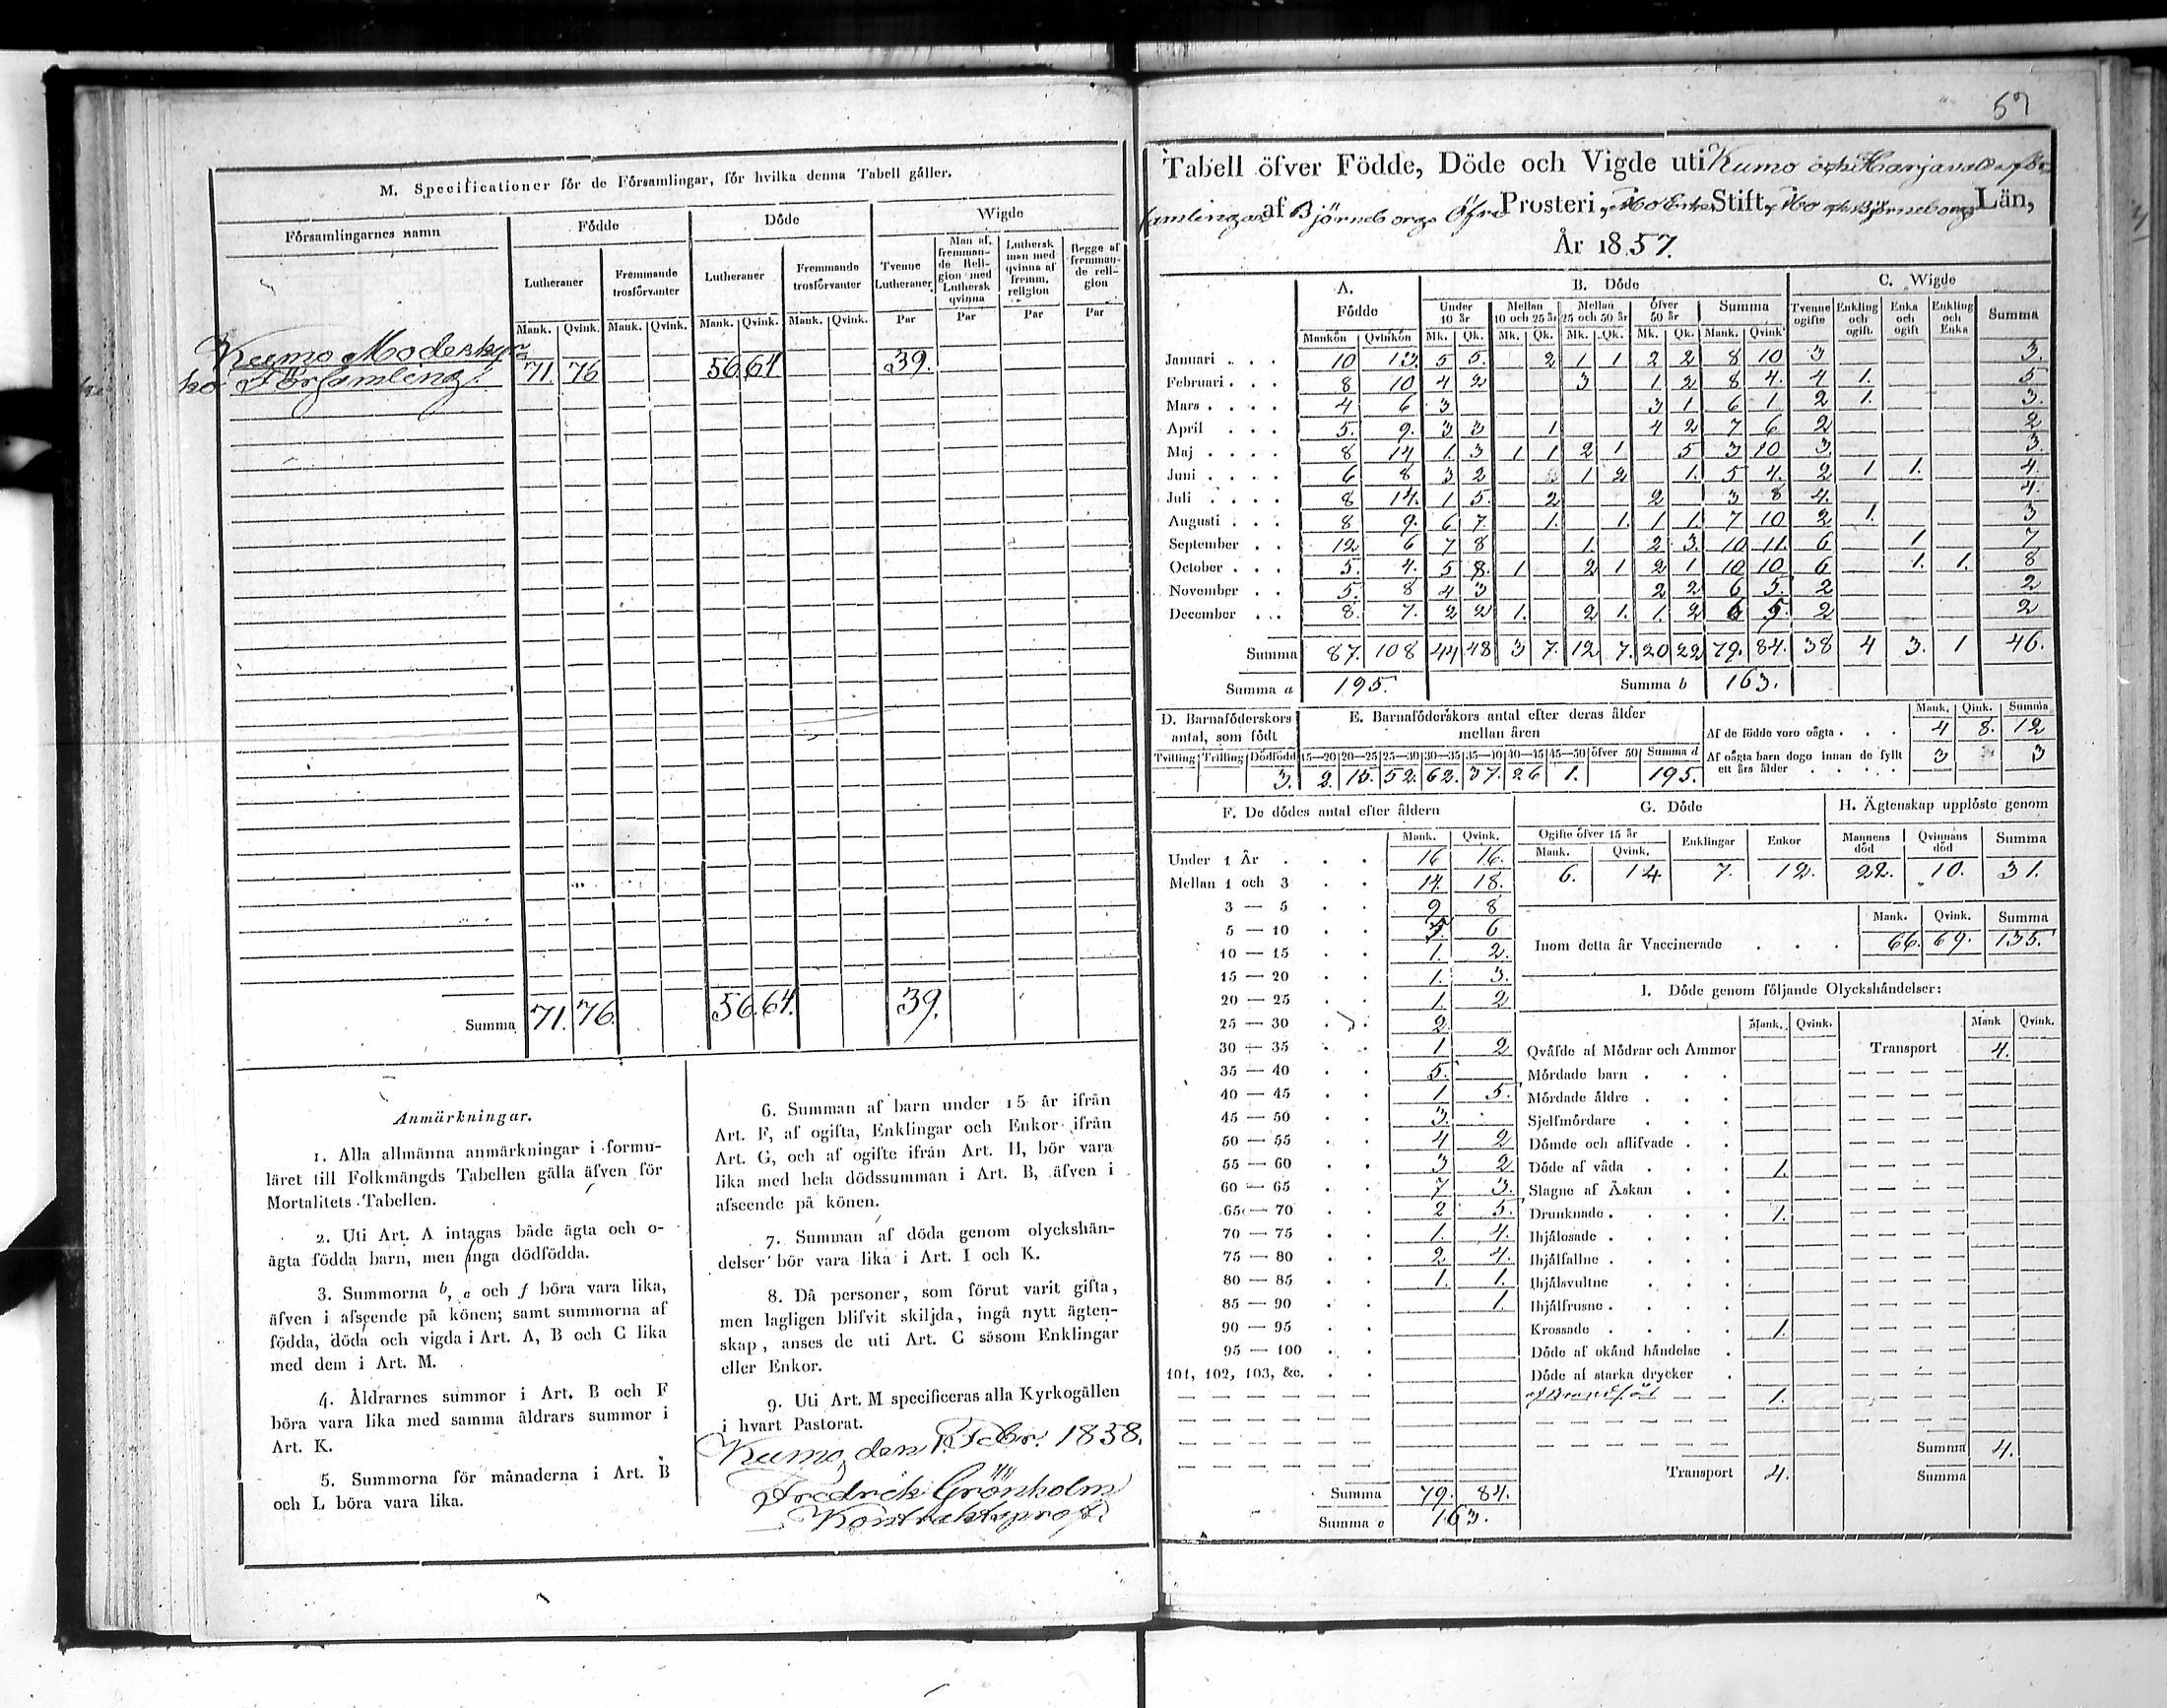 M. Specificationer för de Församlingar, för hvilka denna Tabell gäller.
Församlingarnes namn | Födde | Döde | Wigde
Lutheraner | Fremmande trosförvanter | Lutheraner | Fremmande trosförvanter | Tvenne Lutheraner | Man af fremmande Religion med Luthersk qvinna | Luthersk man med qvinna af fremm. religion | Begge af fremmande religion
Mank. | Qvink. | Mank. | Qvink. | Mank. | Qvink. | Mank. | Qvink. | Par | Par | Par | Par
Kumo Moderkyr
ko Församling. 71. 76 56 64 39.
Summa 71. 76. 56. 64. 39.
Anmärkningar.
1. Alla allmänna anmärkningar i formu-
läret till Folkmängds Tabellen gälla äfven för
Mortalitets Tabellen.
2. Uti Art. A intagas både ägta och o-
ägta födda barn, men inga dödfödda.
3. Summorna b, c och f böra vara lika,
äfven i afseende på könen; samt summorna af
födda, döda och vigda i Art. A, B och C lika
med dem i Art. M.
4. Åldrarnes summor i Art. B och F
böra vara lika med samma åldrars summor i
Art. K.
5. Summorna för månaderna i Art. B
och L böra vara lika.
6. Summan af barn under 15 år ifrån
Art. F, af ogifta, Enklingar och Enkor ifrån
Art. G, och af ogifte ifrån Art. H, bör vara
lika med hela dödssumman i Art. B, äfven i
afseende på könen.
7. Summan af döda genom olyckshän-
delser bör vara lika i Art. I och K.
8. Då personer, som förut varit gifta,
men lagligen blifvit skiljda, ingå nytt ägten-
skap, anses de uti Art. C såsom Enklingar
eller Enkor.
9. Uti Art. M specificeras alla Kyrkogällen
i hvart Pastorat.
Kumo, den 1. Febr. 1838.
Fredrick Grönholm
Kontraktsprost
57
Tabell öfver Födde, Döde och Vigde uti Kumo och Harjavalda för
samlingar af Björneborgs Öfre Prosteri, Åbo Erke Stift, Åbo och Björneborgs Län,
År 1857.
A. Födde | B. Döde | C. Wigde
Under 10 år | Mellan 10 och 25 år | Mellan 25 och 50 år | Öfver 50 år | Summa | Tvenne ogifte | Enkling och ogift. | Enka och ogift | Enkling och Enka | Summa
Mankön | Qvinkön | Mk. | Qk. | Mk. | Qk. | Mk. | Qk. | Mk. | Qk. | Mank. | Qvink
Januari 10 13 5 5. 2 1 1 2 2 8 10 3 3.
Februari 8 10 4 2 3 1 2 8 4. 4 1. 5
Mars 4 6 3 3 1 6 1 2 1. 3.
April 5. 9. 3 3 1 4 2 7 6 2 2
Maj 8 14 1. 3 1 1 2 1. 5 3 10 3. 3.
Juni 6 8 3 2 1 2 1. 5 4. 2 1 1. 4.
Juli 8 14. 1 5. 2 2 3 8 4. 4.
Augusti 8 9. 6 7 1. 1. 1 1. 7 10 2 1. 3
September 12 6 7 8 1. 2 3. 10 11. 6 1 7
October 5. 4. 5 8. 1 2 1 2 1 10 10 6 1. 1. 8
November 5. 8 4 3 2 2 6 5. 2 2
December 8. 7. 2 2 1. 2 1. 1. 2 6 5. 2 2
Summa 87. 108 44 48 3 7. 12 7. 20 22 79. 84. 38 4 3. 1 46.
Summa a 195. Summa b 163.
D. Barnaföderskors antal, som födt | E. Barnaföderskors antal efter deras ålder mellan åren | Mank. | Qink. | Summa
Af de födde voro oägta . . . 4 8. 12
Tvilling | Trilling | Dödfödd | 15—20 | 20—25 | 25—30 | 30—35 | 35—40 | 40—45 | 45—50 | öfver 50 | Summa d
3. 2. 15. 52. 62. 37. 26 1. 195.
Af oägta barn dogo innan de fyllt ett års ålder . . . 3 3
F. De dödes antal efter åldern
Mank. | Qvink.
Under 1 År 16 16.
Mellan 1 och 3 14. 18.
3 — 5 9 8
5 — 10 5 6
10 — 15 1. 2.
15 — 20 1. 3.
20 — 25 1. 2
25 — 30 2
30 — 35 1 2
35 — 40 5.
40 — 45 1 5.
45 — 50 3.
50 — 55 4 2
55 — 60 3 2
60 — 65 7 3.
65 — 70 2 5.
70 — 75 1. 4.
75 — 80 2 4.
80 — 85 1. 1.
85 — 90 1.
90 — 95
95 — 100
101, 102, 103, &c.
Summa 79. 84.
Summa c 163.
G. Döde | H. Ägtenskap upplöste genom
Ogifte öfver 15 år | Enklingar | Enkor | Mannens död | Qvinnans död | Summa
Mank. | Qvink.
6. 14. 7. 12. 22. 10. 31.
Mank. | Qvink. | Summa
Inom detta år Vaccinerade . . . 66. 69. 135.
I. Döde genom följande Olyckshändelser:
Mank. | Qvink. | Mank | Qvink.
Qväfde af Mödrar och Ammor | Transport 4.
Mördade barn
Mördade äldre
Sjelfmördare
Dömde och aflifvade
Döde af våda 1.
Slagne af Åskan
Drunknade 1.
Ihjälosade
Ihjälfallne
Ihjälsvultne
Ihjälfrusne
Krossade 1.
Döde af okänd händelse
Döde af starka drycker
1.
Summa 4.
Transport 4. Summa